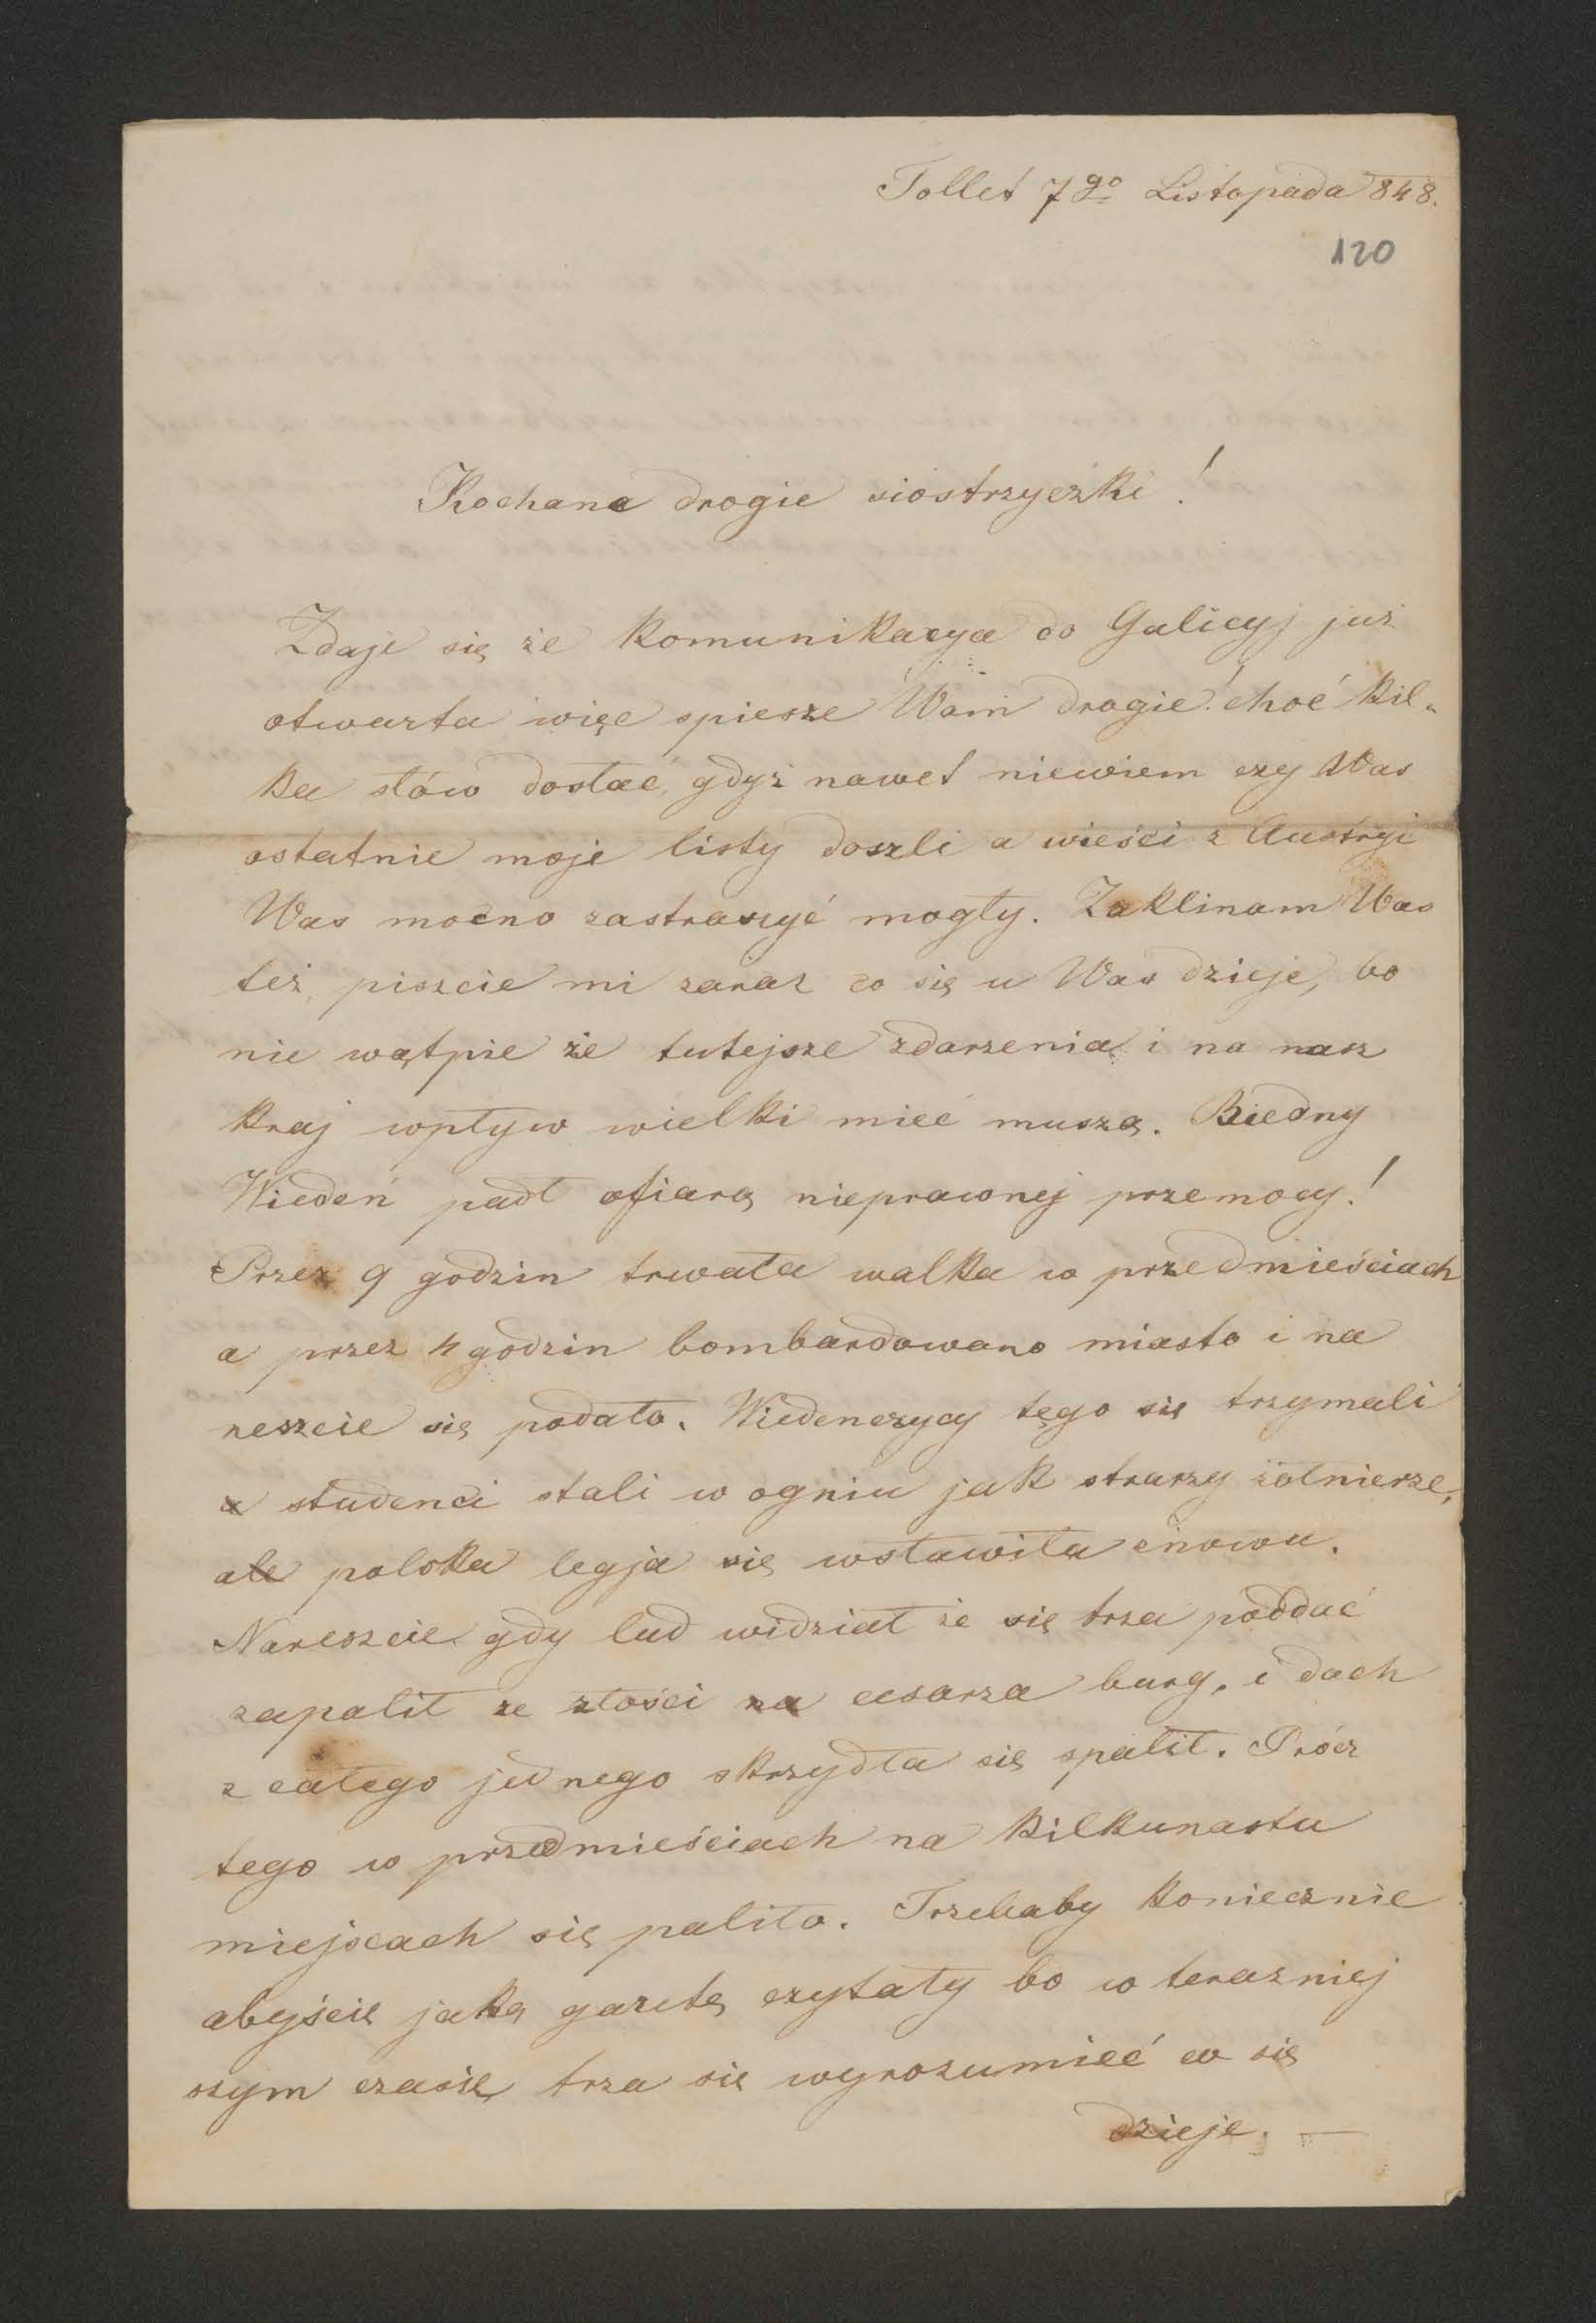 Tollet 7go Listopada 848.
120
Kochane drogie siostrzyczki!
Zdaje się że komunikacya do Galicyj już
otwarta więc spiesze Wam drogie! choć kil„
ka słów dostać, gdyż nawet niewiem czy Was
ostatnie moje listy doszli a wieści z Austryi
Was mocno zastraszyć mogły. Zaklinam Was
też, piszcie mi zaraz co się u Was dzieje, bo
nie wątpie że tutejsze zdarzenia i na nasz
kraj wpływ wielki mieć muszą. Biedny
Wiedeń padł ofiarą nieprawnej przemocy!
Przez 9 godzin trwała walka w przedmieściach
a przez 4 godzin bombardowano miasto i na
reszcie się podało. Wiedenczycy tęgo się trzymali
a studenci stali w ogniu jak starzy żołnierze,
ale polska legja się wsławiła znowu.
Nareszcie gdy lud widział że się trza poddać
zapalił ze złości na cesarza burg, i dach
z całego jednego skrzydła się spalił. Prócz
tego w przedmieściach na kilkunastu
miejscach się paliło. Trzebaby koniecznie
abyście jaką gazetę czytały bo w terazniej
szym czasie trza się wyrozumieć co się
dzieje. —